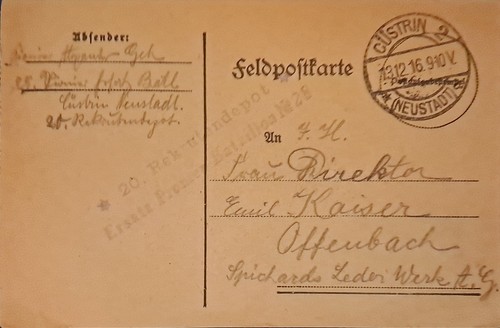 Absender:
Pionier Geh
28. Pionier Ersatz Batl.
Cüstrin Neustadt.
20. Rekrutendepot.
Feldpostkarte
CÜSTRIN 2
13.12.16. 9-10 V.
* (NEUSTADT) *
* 20. Rekrutendepot *
Ersatz Pionier Bataillon № 28
An J. H.
Frau Direktor
Emil Kaiser
Offenbach
Spichards Leder Werk A. G.